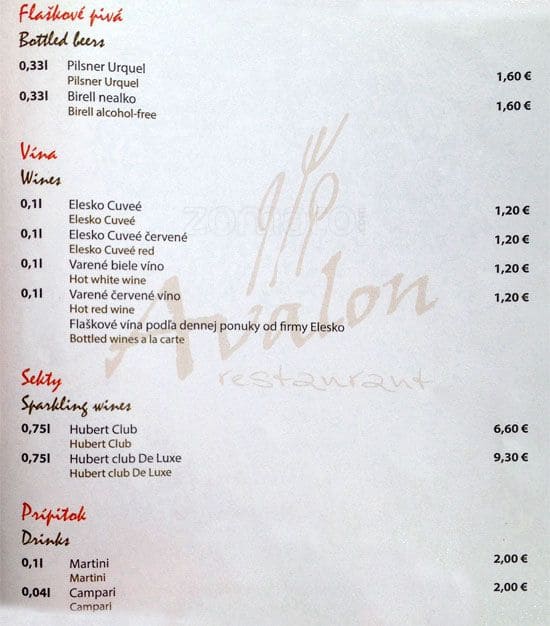 Flaškové pivá
Bottled beers
0,33l Pilsner Urquel 1,60 €
Pilsner Urquel
0,33l Birell nealko 1,60 €
Birell alcohol-free
Vína
Wines
0,1l Elesko Cuveé 1,20 €
Elesko Cuveé
0,1l Elesko Cuveé červené 1,20 €
Elesko Cuveé red
0,1l Varené biele víno 1,20 €
Hot white wine
0,1l Varené červené víno 1,20 €
Hot red wine
Flaškové vína podľa dennej ponuky od firmy Elesko
Bottled wines a la carte
zomato.com
Avalon
restaurant
Sekty
Sparkling wines
0,75l Hubert Club 6,60 €
Hubert Club
0,75l Hubert club De Luxe 9,30 €
Hubert club De Luxe
Prípitok
Drinks
0,1l Martini 2,00 €
Martini
0,04l Campari 2,00 €
Campari